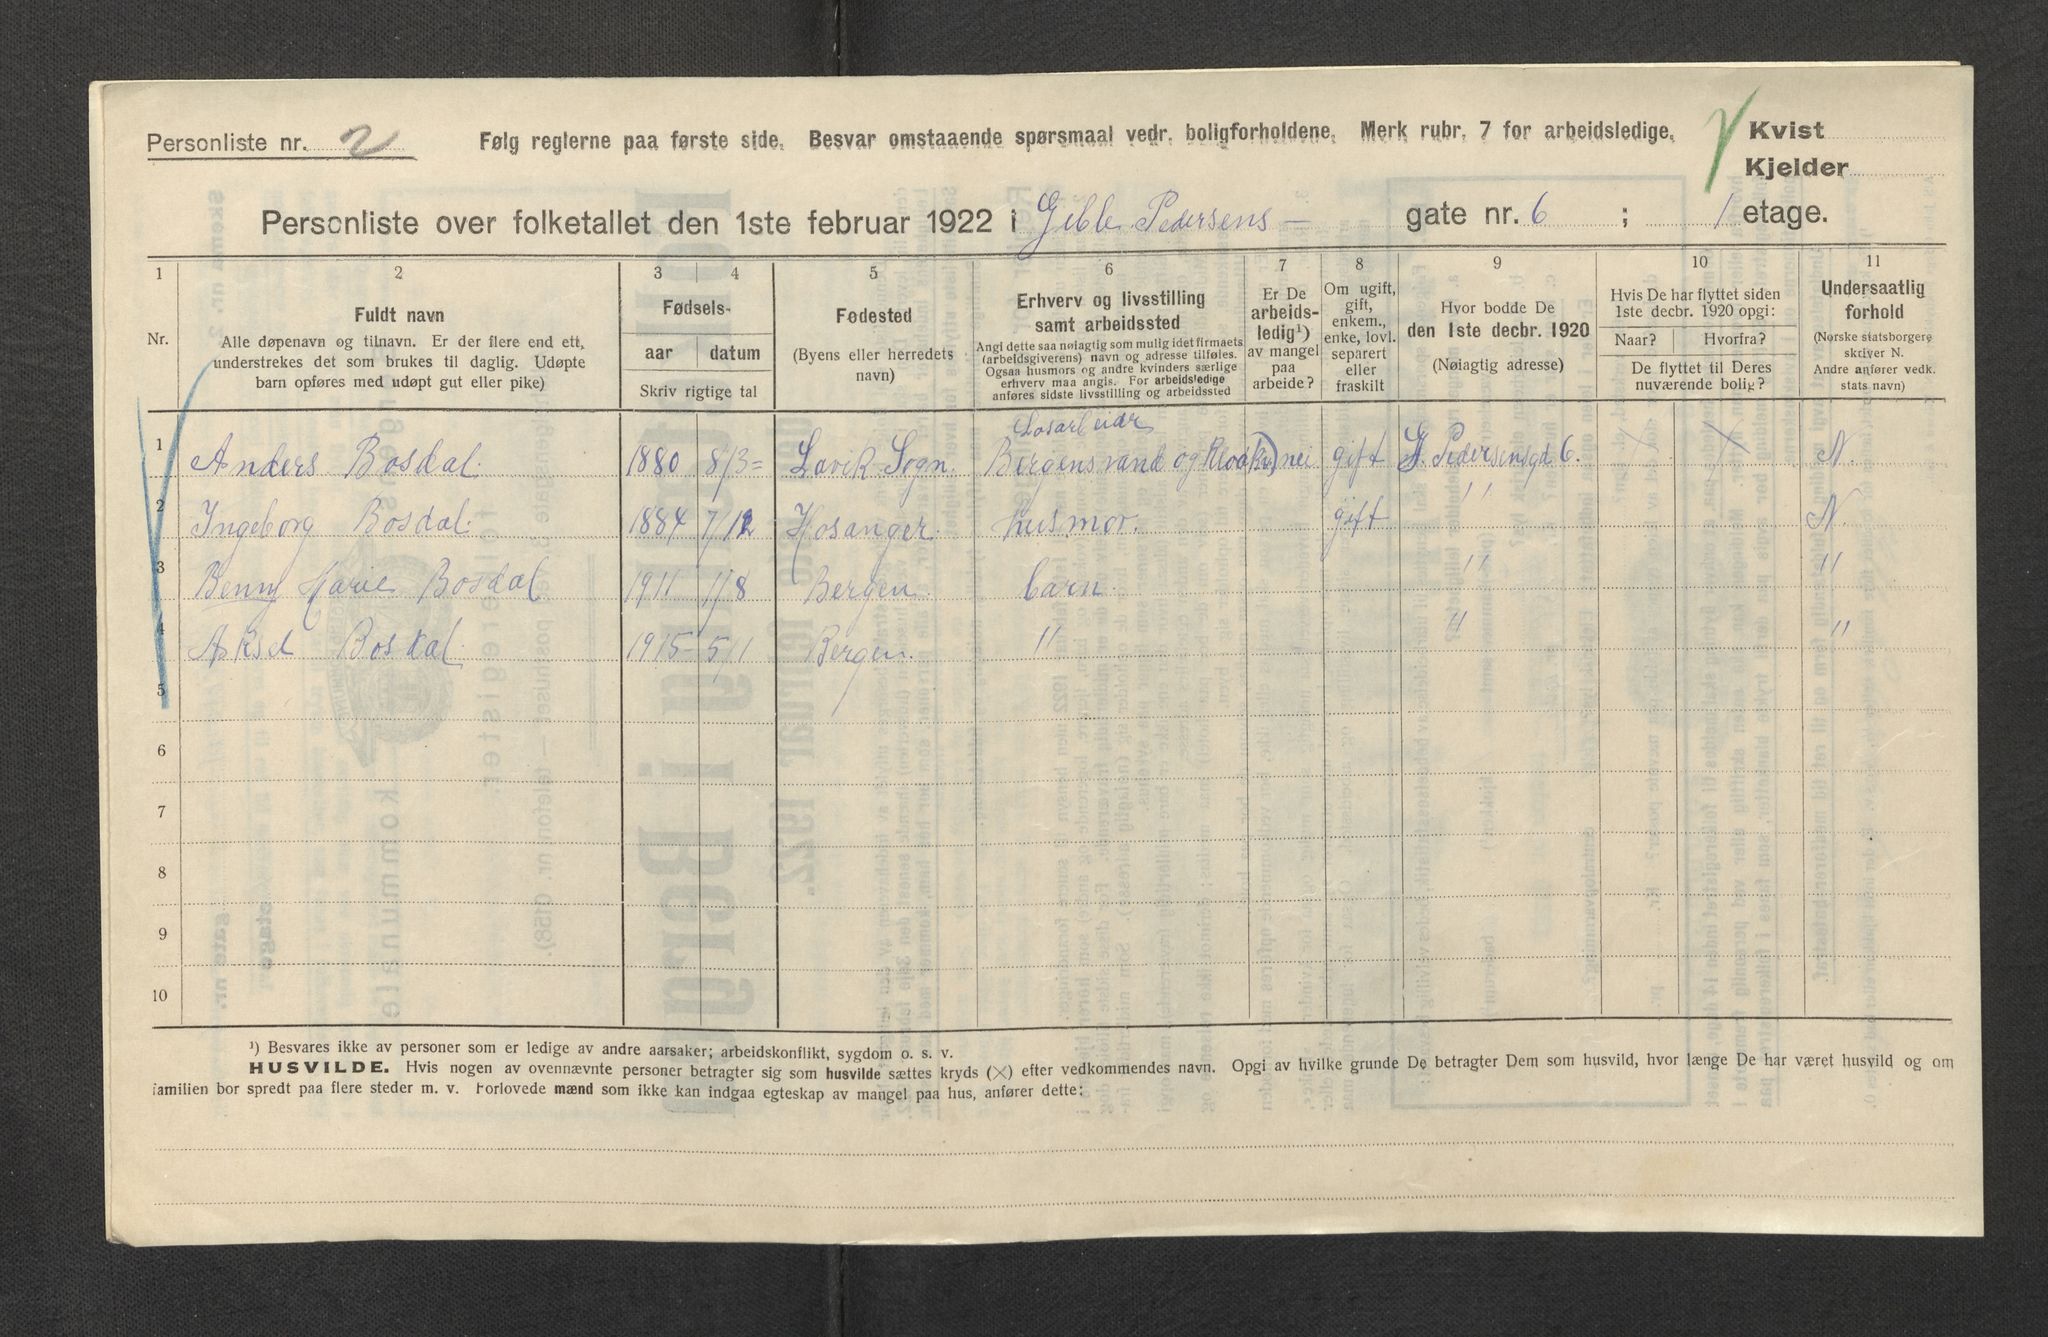 Personliste nr. 2 Følg reglerne paa første side. Besvar omstaaende spørsmaal vedr. boligforholdene. Merk rubr. 7 for arbeidsledige. Kvist
Kjelder
Personliste over folketallet den 1ste februar 1922 i Gible Pedersens - gate nr. 6 ; 1 etage.
1 2 3 4 5 6 7 8 9 10 11
Nr.
Fuldt navn
Alle døpenavn og tilnavn. Er der flere end ett,
understrekes det som brukes til daglig. Udøpte
barn opføres med udøpt gut eller pike)
Fødsels-
aar datum
Skriv rigtige tal
Fødested
(Byens eller herredets
navn)
Erhverv og livsstilling
samt arbeidssted
Angi dette saa nøiagtig som mulig idet firmaets
(arbeidsgiverens) navn og adresse tilføies.
Ogsaa husmors og andre kvinders særlige
erhverv maa angis. For arbeidsledige
anføres sidste livsstilling og arbeidssted
Er De
arbeids-
ledig¹)
av mangel
paa
arbeide?
Om ugift,
gift,
enkem.,
enke, lovl.
separert
eller
fraskilt
Hvor bodde De
den 1ste decbr. 1920
(Nøiagtig adresse)
Hvis De har flyttet siden
1ste decbr. 1920 opgi:
Naar? Hvorfra?
De flyttet til Deres
nuværende bolig?
Undersaatlig
forhold
(Norske statsborgere
skriver N.
Andre anfører vedk.
stats navn)
Losarbeider
1 Anders Bosdal. 1880 8/3 = Lavik Sogn. Bergens vand og kloak nei gift G. Pedersensgd 6. × × N.
2 Ingeborg Bosdal. 1884 7/12 Hosanger. husmor. gift " N.
3 Benny Marie Bosdal 1911 1/8 Bergen. barn. " "
4 Aksel Bosdal. 1915 - 5/1 Bergen. " " "
5
6
7
8
9
10
¹) Besvares ikke av personer som er ledige av andre aarsaker; arbeidskonflikt, sygdom o. s. v.
HUSVILDE. Hvis nogen av ovennævnte personer betragter sig som husvilde sættes kryds (×) efter vedkommendes navn. Opgi av hvilke grunde De betragter Dem som husvild, hvor længe De har været husvild og om
familien bor spredt paa flere steder m. v. Forlovede mænd som ikke kan indgaa egteskap av mangel paa hus, anfører dette: